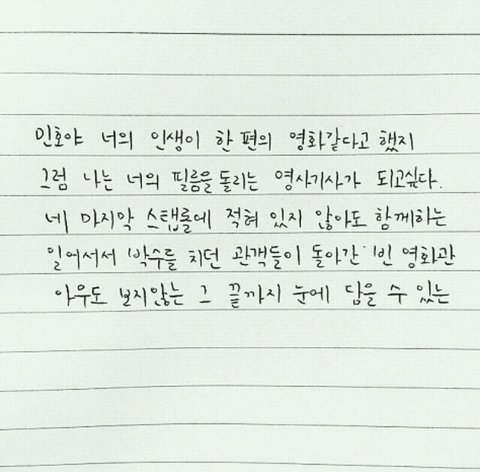 민호야 너의 인생이 한 편의 영화같다고 했지
그럼 나는 너의 필름을 돌리는 영사기사가 되고싶다.
네 마지막 스탭롤에 적혀 있지 않아도 함께하는
일어서서 박수를 치던 관객들이 돌아간 빈 영화관
아우도 보지않는 그 끝까지 눈에 담을 수 있는